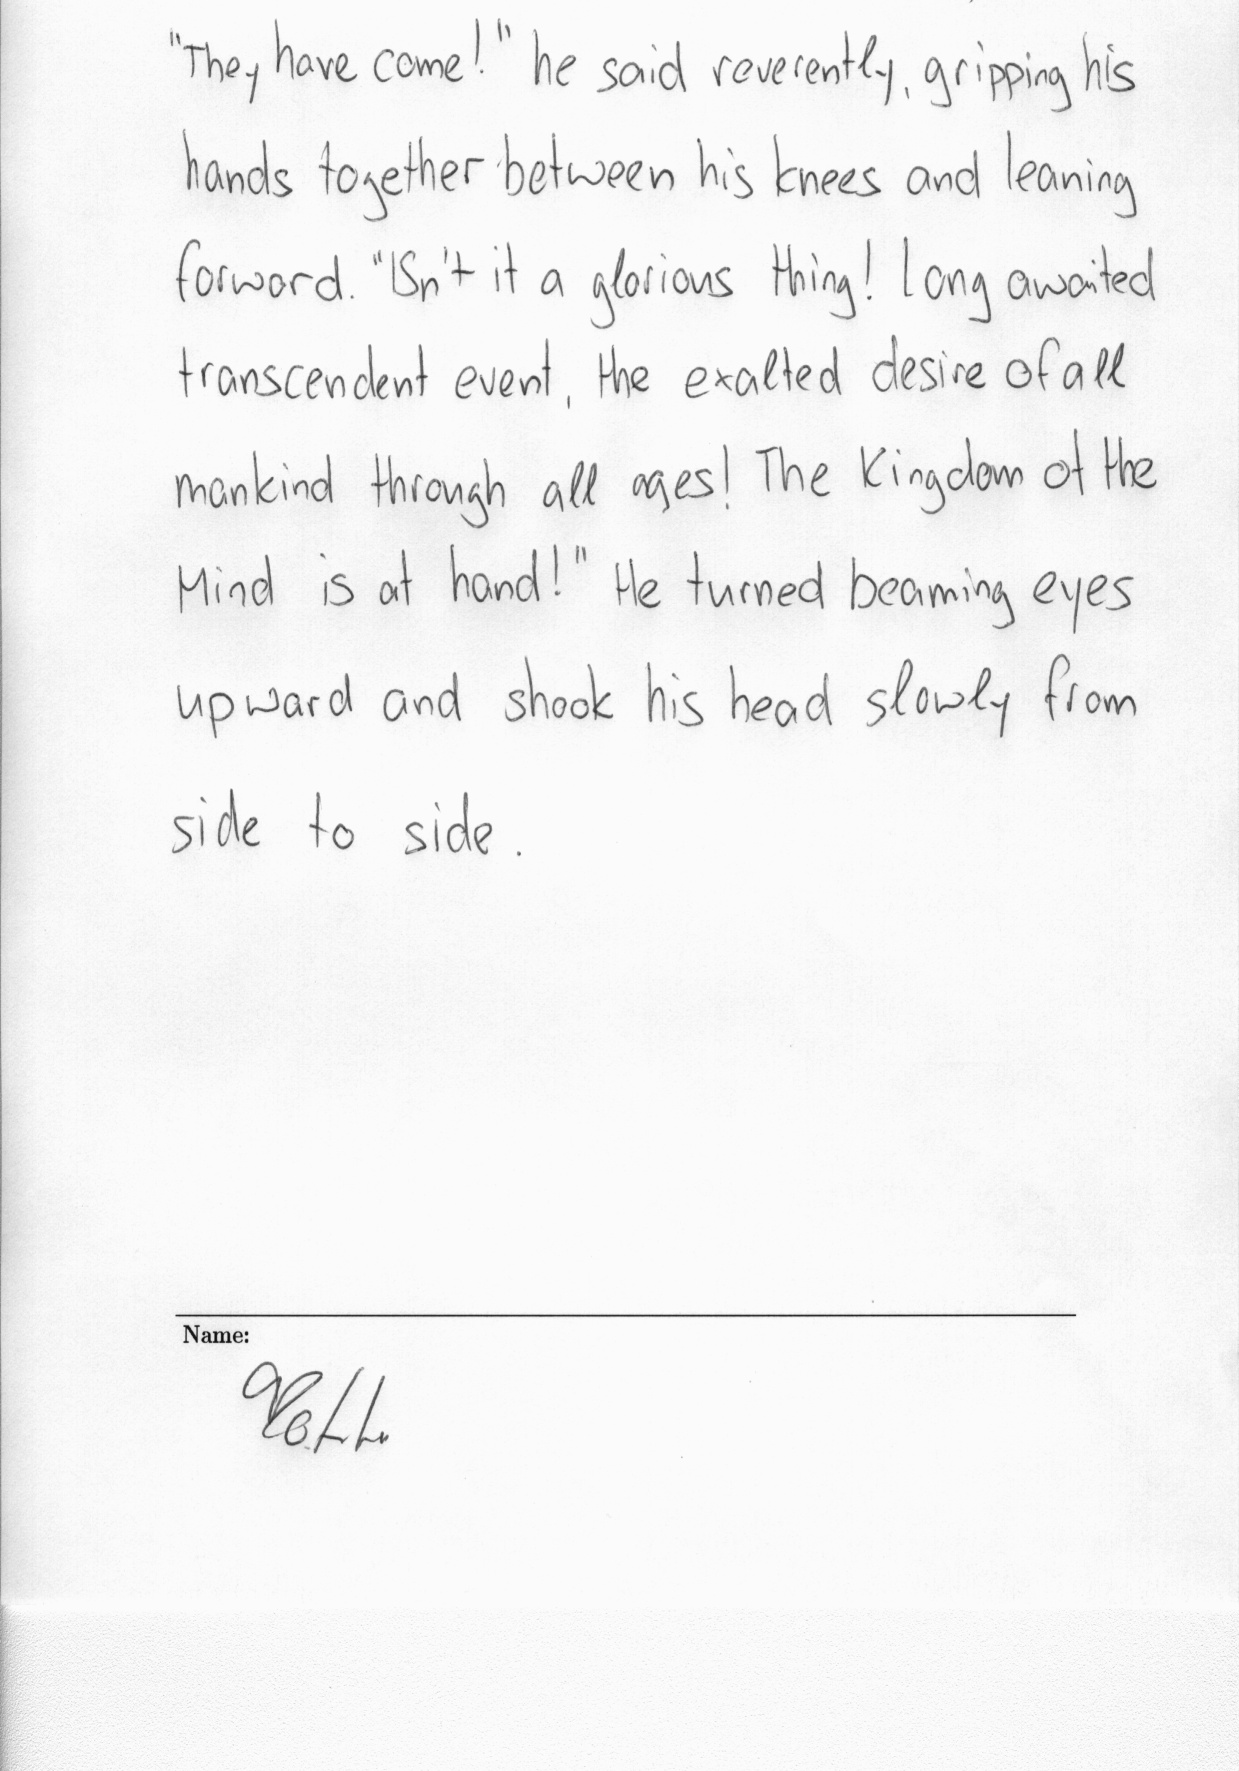 "They have come!" he said reverently, gripping his
hands together between his knees and leaning
forward. "Isn't it a glorious thing! Long awaited
transcendent event, the exalted desire of all
mankind through all ages! The Kingdom of the
Mind is at hand!" He turned beaming eyes
upward and shook his head slowly from
side to side.
Name: